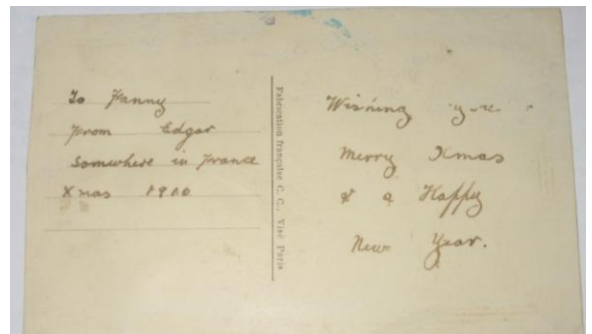 To Fanny
From Edgar
Somwhere in France
Xmas
Fabrication française C. C., Visé Paris
Wishing you
Merry Xmas
& a Happy
New Year.